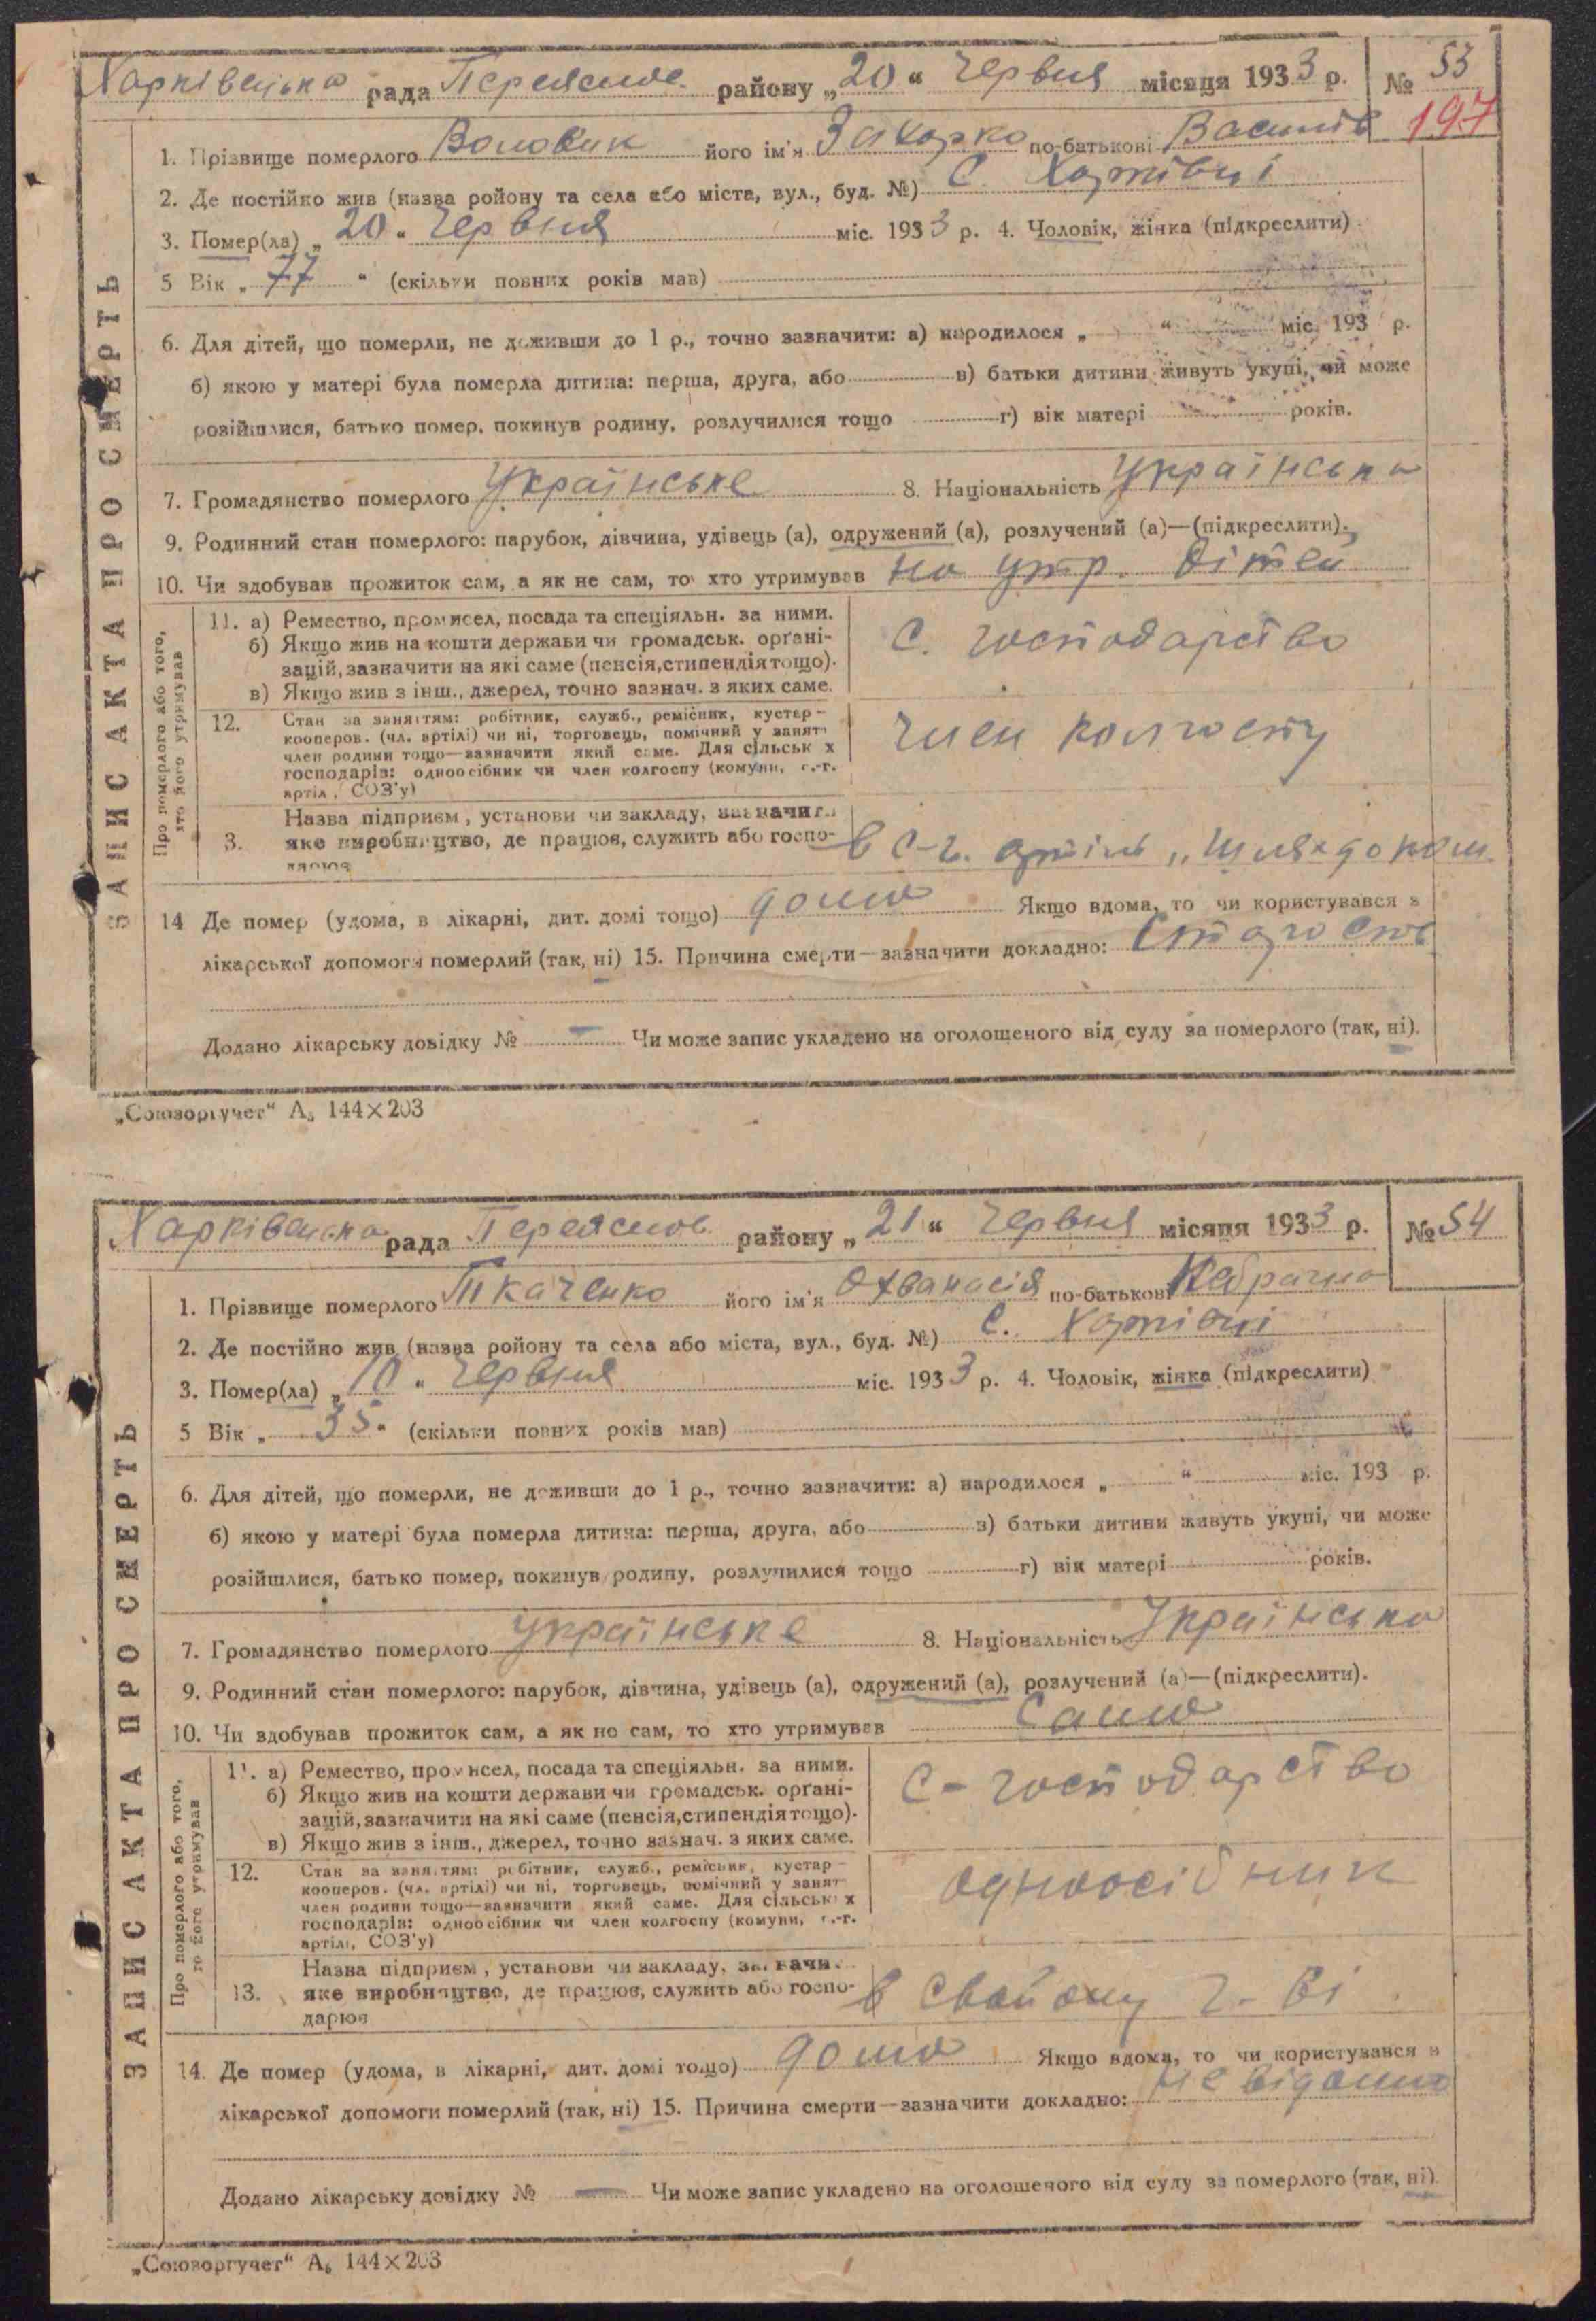 Харківецька рада Переяслов. району „20“ Червня місяця 1933 р. № 53
197
1. Прізвище померлого Воловик його ім'я Захарко по-батькові Василів
2. Де постійно жив (назва ройону та села або міста, вул., буд. №) С. Харківці
3. Помер(ла) „20“ Червня міс. 1933 р. 4. Чоловік, жінка (підкреслити)
5 Вік „77“ (скільки повних років мав)
6. Для дітей, що померли, не доживши до 1 р., точно зазначити: а) народилося „ “ міс. 193 р.
б) якою у матері була померла дитина: перша, друга, або в) батьки дитини живуть укупі, чи може
розійшлися, батько помер, покинув родину, розлучилися тощо г) вік матері років.
7. Громадянство померлого Українське 8. Національність Українська
9. Родинний стан померлого: парубок, дівчина, удівець (а), одружений (а), розлучений (а)—(підкреслити).
10. Чи здобував прожиток сам, а як не сам, то хто утримував на утр. дітей
ЗАПИС АКТА ПРО СМЕРТЬ
Про померлого або того,
хто його утримував
11. а) Ремество, промисел, посада та спеціяльн. за ними.
б) Якщо жив на кошти держави чи громадськ. орґані-
зацій, зазначити на які саме (пенсія, стипендія тощо).
в) Якщо жив з інш., джерел, точно зазнач. з яких саме.
С. господарство
12. Стан за заняттям: робітник, служб., ремісник, кустар-
кооперов. (чл. артілі) чи ні, торговець, помічний у занятт
член родини тощо—зазначити який саме. Для сільськ х
господарів: одноосібник чи член колгоспу (комуни, с.-г.
артіл , СОЗ'у)
член колгоспу
3. Назва підприєм , установи чи закладу, зазначит
яке виробництво, де працюв, служить або госпо-
дарюв
в С-г. артіль „Шлях до ком.
14 Де помер (удома, в лікарні, дит. домі тощо) дома Якщо вдома, то чи користувався з
лікарської допомоги померлий (так, ні) 15. Причина смерти—зазначити докладно: Старость
Додано лікарську довідку № — Чи може запис укладено на оголошеного від суду за померлого (так, ні).
„Союзоргучет“ А₅ 144×203
Харківецька рада Переяслов. району „21“ Червня місяця 1933 р. № 54
1. Прізвище померлого Ткаченко його ім'я Охванасія по-батькові
2. Де постійно жив (назва ройону та села або міста, вул., буд. №) С. Харківці
3. Помер(ла) „10“ Червня міс. 1933 р. 4. Чоловік, жінка (підкреслити)
5 Вік „35“ (скільки повних років мав)
6. Для дітей, що померли, не доживши до 1 р., точно зазначити: а) народилося „ “ міс. 193 р.
б) якою у матері була померла дитина: перша, друга, або в) батьки дитини живуть укупі, чи може
розійшлися, батько помер, покинув родину, розлучилися тощо г) вік матері років.
7. Громадянство померлого українське 8. Національність Українська
9. Родинний стан померлого: парубок, дівчина, удівець (а), одружений (а), розлучений (а)—(підкреслити).
10. Чи здобував прожиток сам, а як не сам, то хто утримував Сама
ЗАПИС АКТА ПРО СМЕРТЬ
Про померлого або того,
го його утримував
11. а) Ремество, промисел, посада та спеціяльн. за ними.
б) Якщо жив на кошти держави чи громадськ. орґані-
зацій, зазначити на які саме (пенсія, стипендія тощо).
в) Якщо жив з інш., джерел, точно зазнач. з яких саме.
С-господарство
12. Стан за заняттям: робітник, служб., ремісник, кустар-
кооперов. (чл. артілі) чи ні, торговець, помічний у занят
член родини тощо—зазначити який саме. Для сільськ х
господарів: одноосібник чи член колгоспу (комуни, с.-г.
артілі, СОЗ'у)
одноосібник
13. Назва підприєм , установи чи закладу, зазначи
яке виробництво, де працюв, служить або госпо-
дарюв
в своїому г-ві
14. Де помер (удома, в лікарні, дит. домі тощо) дома Якщо вдома, то чи користувався з
лікарської допомоги померлий (так, ні) 15. Причина смерти—зазначити докладно: не відомо
Додано лікарську довідку № — Чи може запис укладено на оголошеного від суду за померлого (так, ні).
„Союзоргучет“ А₅ 144×203